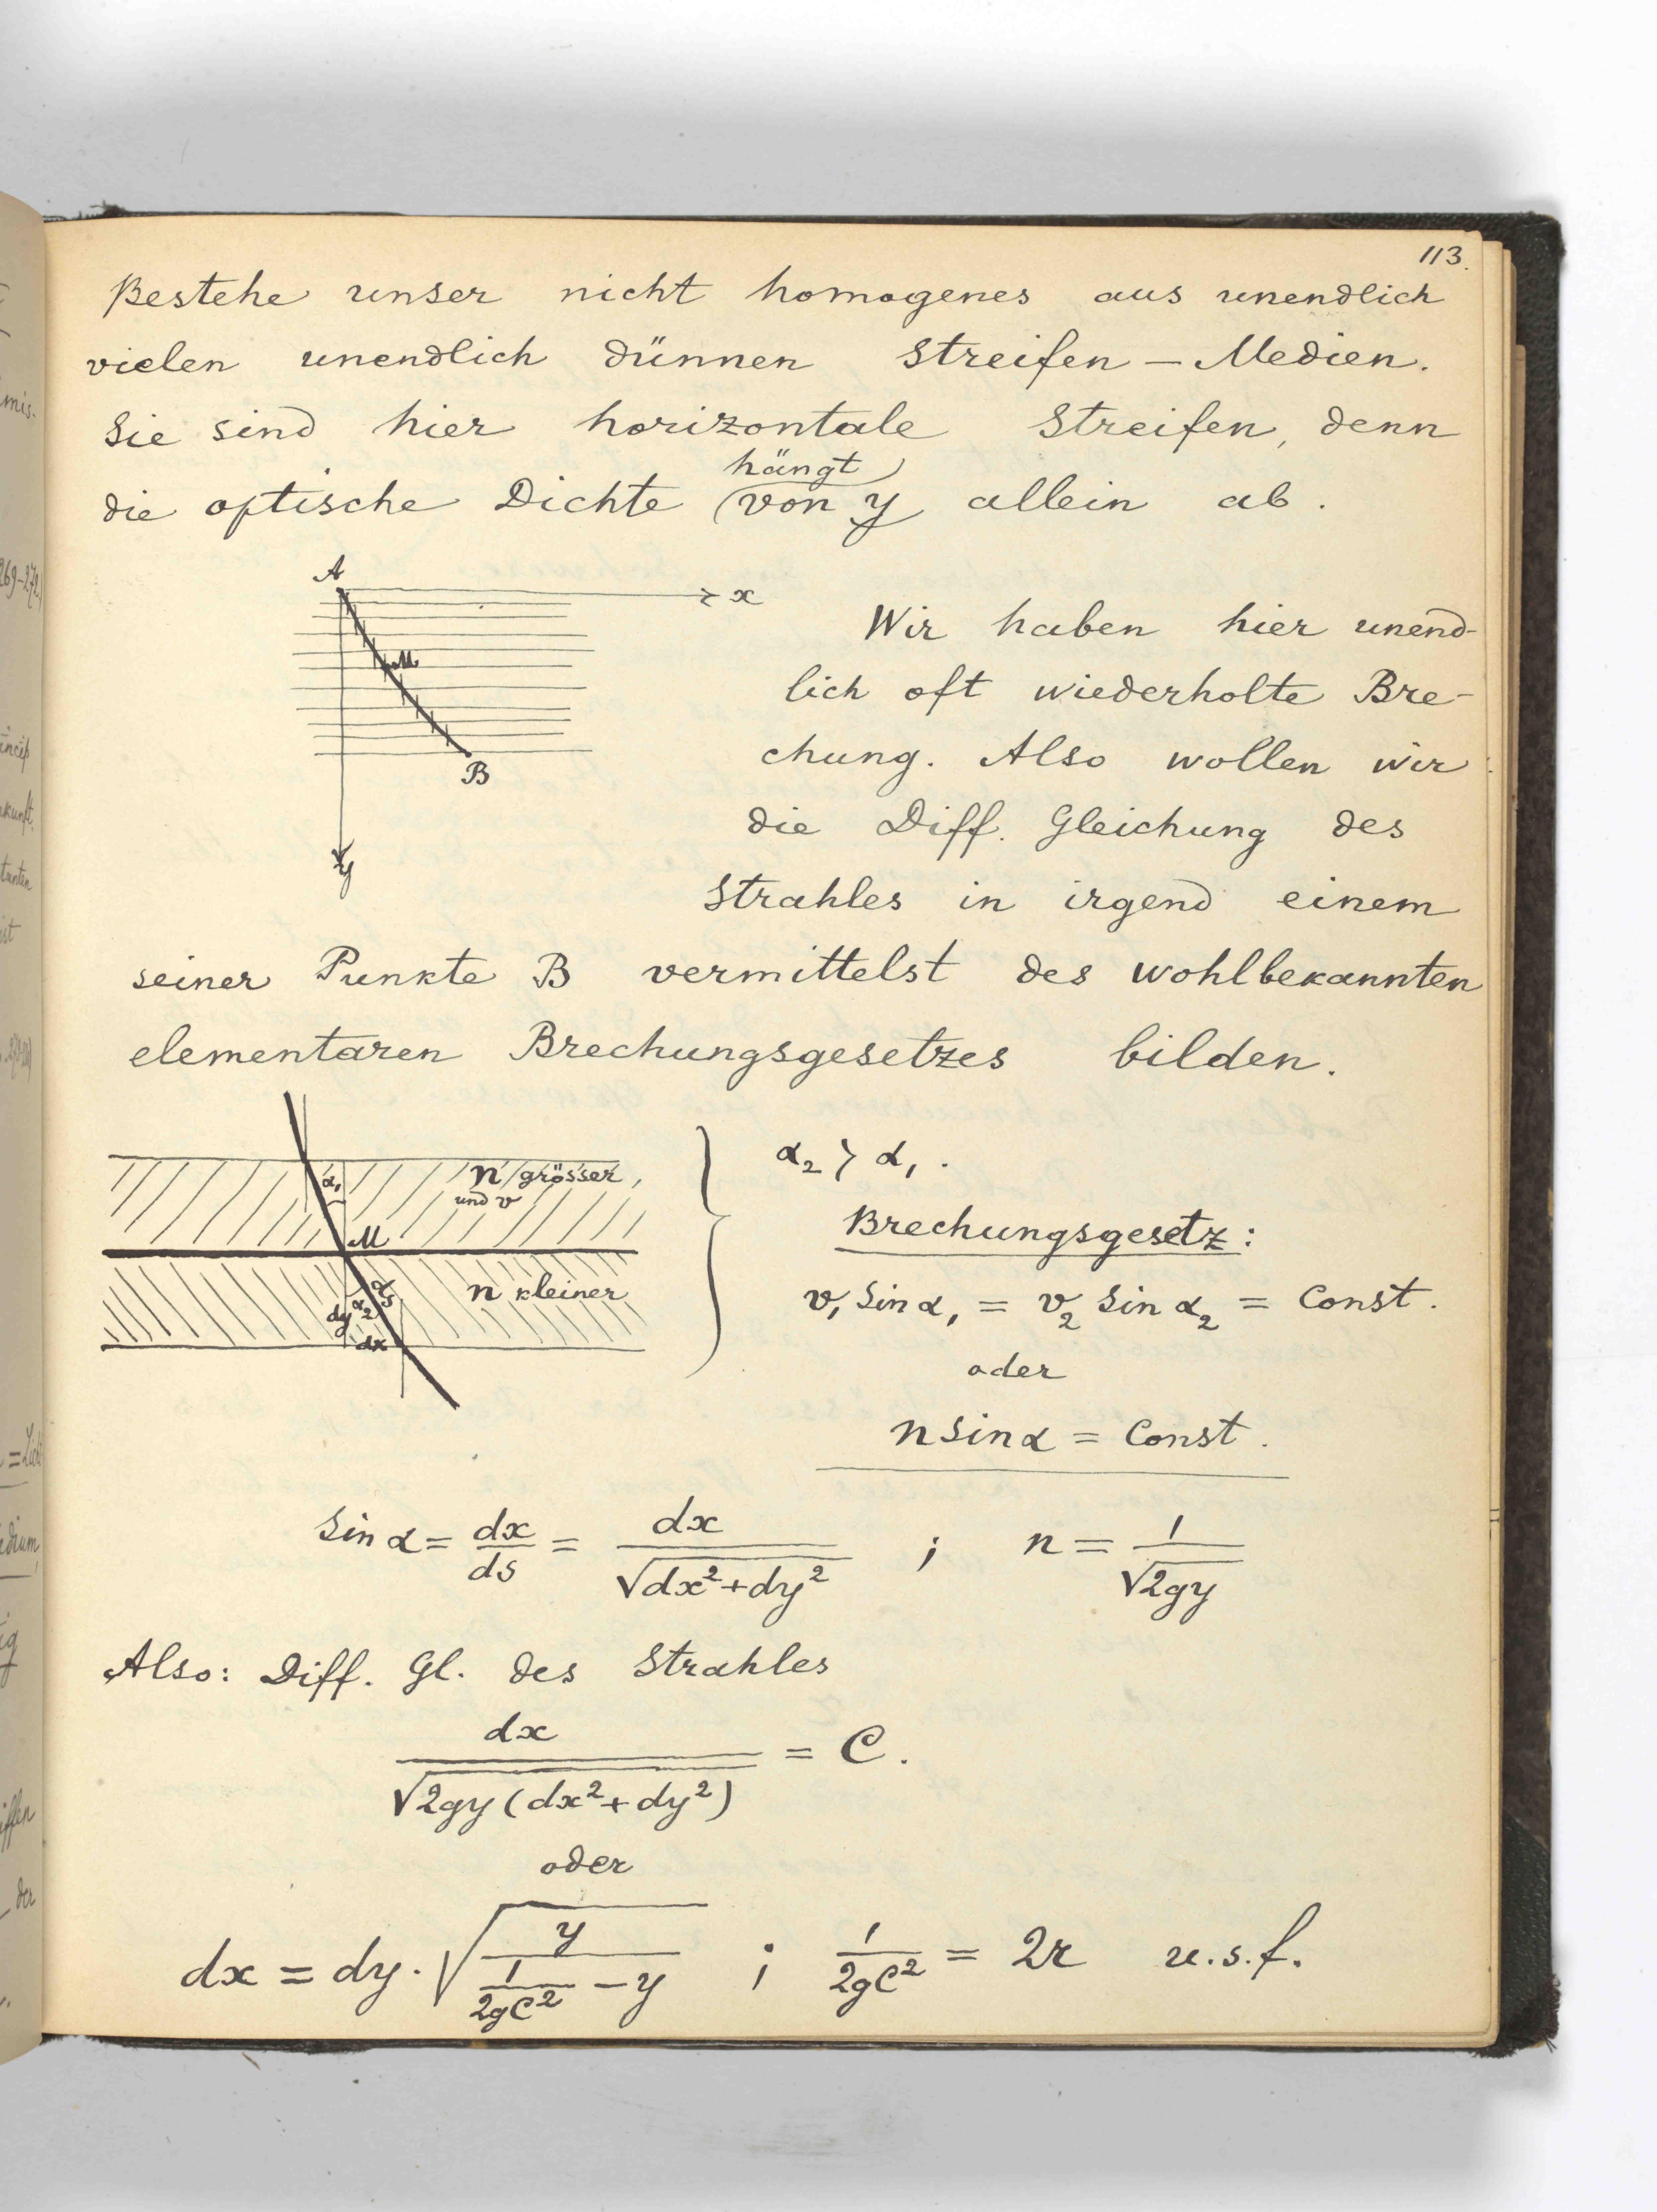 113.
Bestehe unser nicht homogenes aus unendlich
vielen unendlich dünnen Streifen – Medien.
Sie sind hier horizontale Streifen, denn
hängt
die optische Dichte (von y) allein ab.
A
x
M
B
y
Wir haben hier unend-
lich oft wiederholte Bre-
chung. Also wollen wir
die Diff. Gleichung des
Strahles in irgend einem
seiner Punkte B vermittelst des wohlbekannten
elementaren Brechungsgesetzes bilden.
α₁
n grösser,
und v
M
n kleiner
α₂
dy
dx
α₂ > α₁.
Brechungsgesetz:
v₁ Sin α₁ = v₂ Sin α₂ = Const.
oder
n Sin α = Const.
Sin α = dx/ds = dx/√(dx²+dy²) ; n = 1/√(2gy)
Also: Diff. Gl. des Strahles
dx/√(2gy(dx²+dy²)) = C.
oder
dx = dy · √(y/(1/(2gC²) – y)) ; 1/(2gC²) = 2r u.s.f.